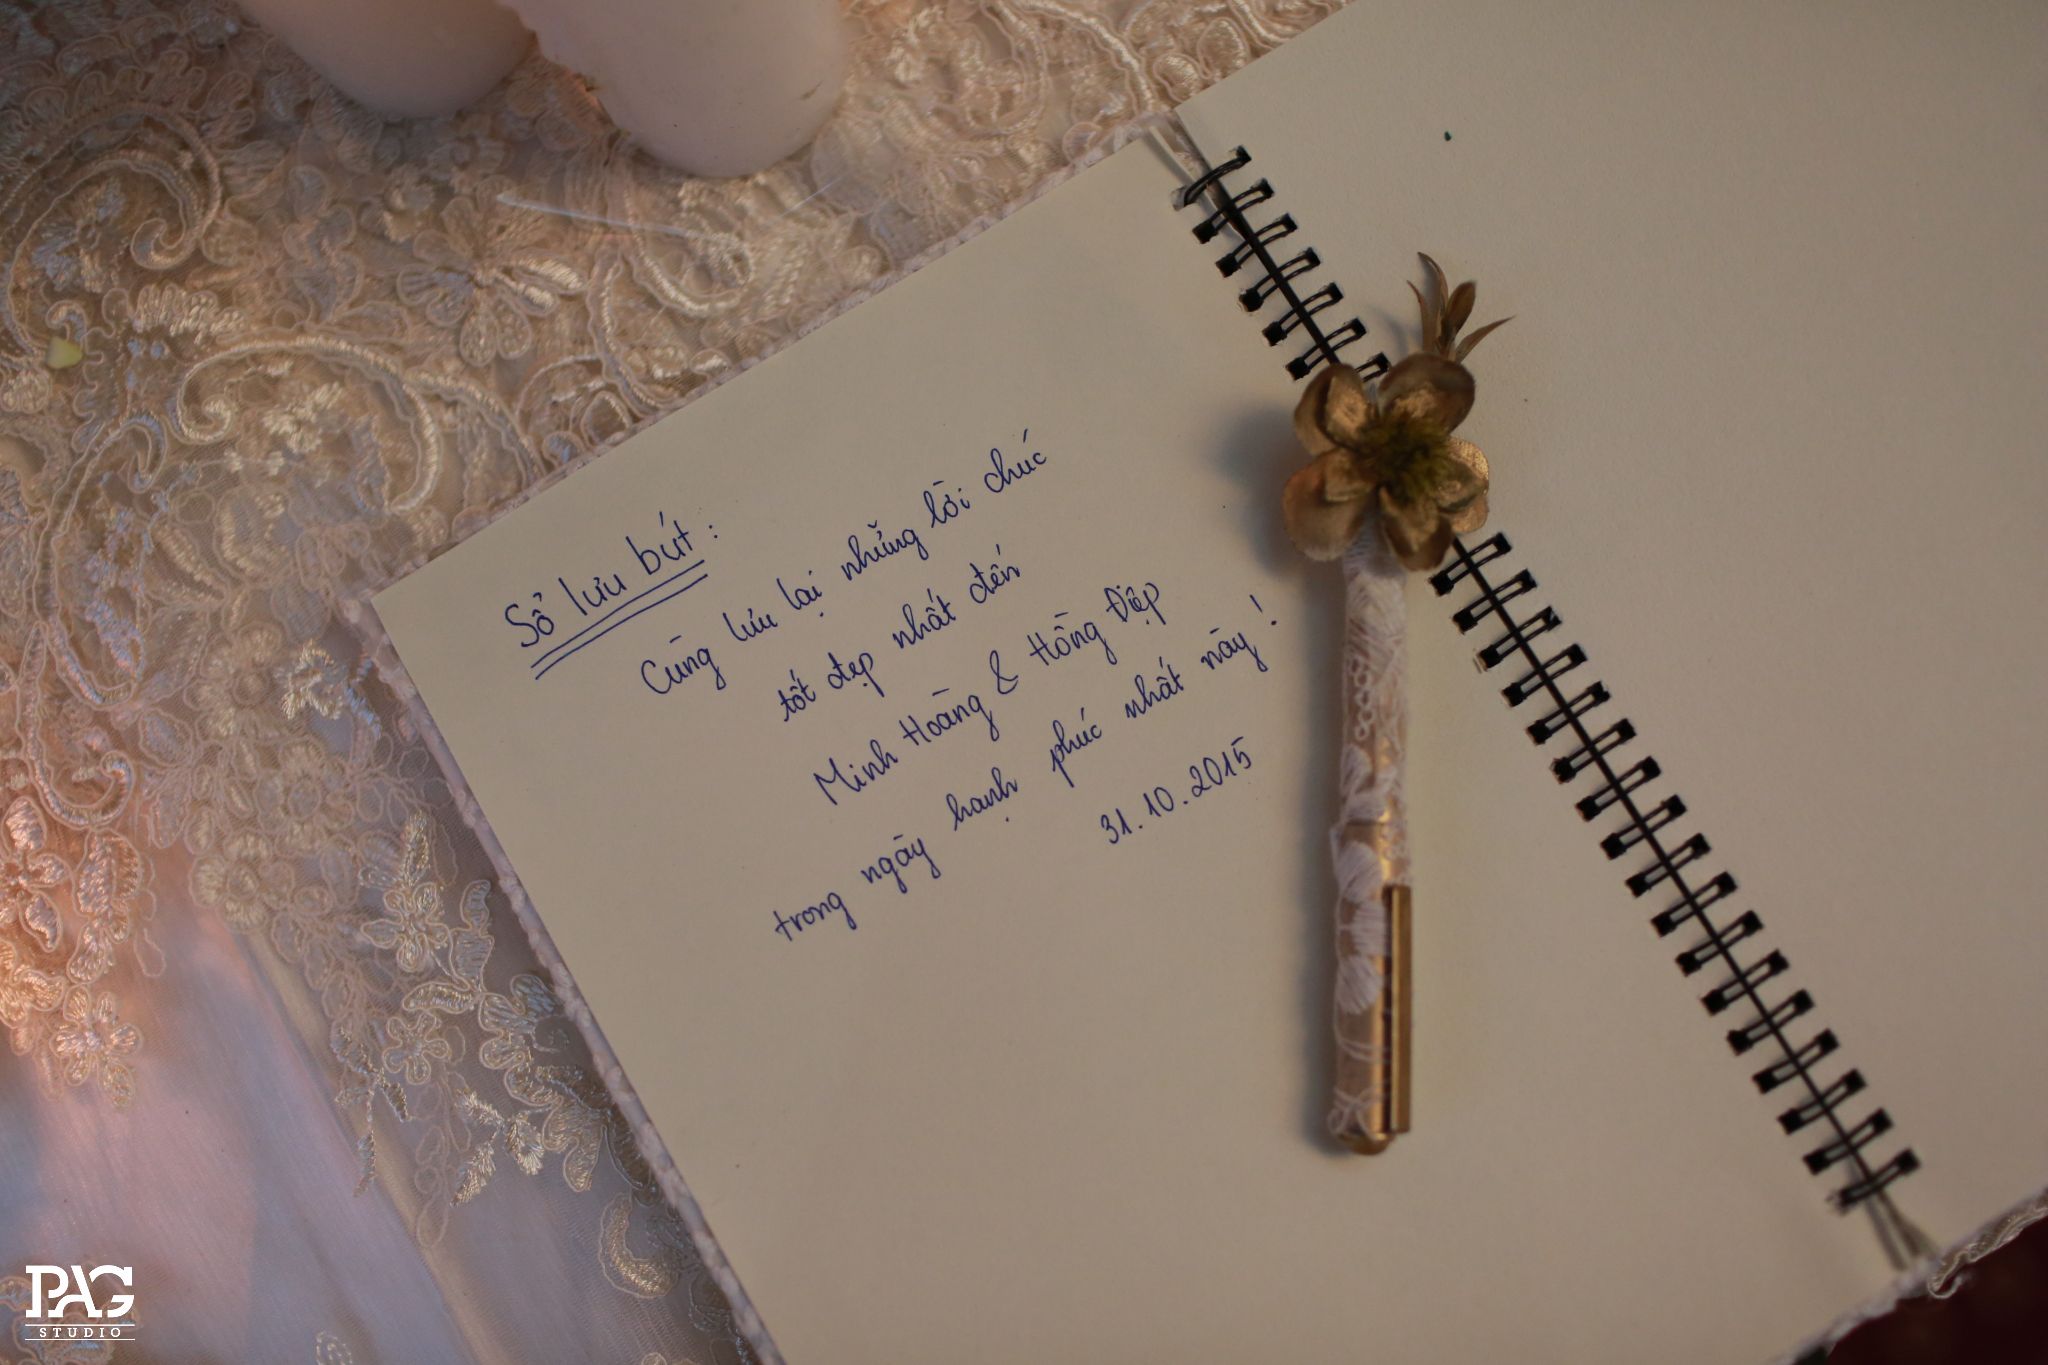 Sổ lưu bút :
Cùng lưu lại những lời chúc
tốt đẹp nhất đến
Minh Hoàng & Hồng Điệp
trong ngày hạnh phúc nhất này !
31.10.2015
PAG
STUDIO